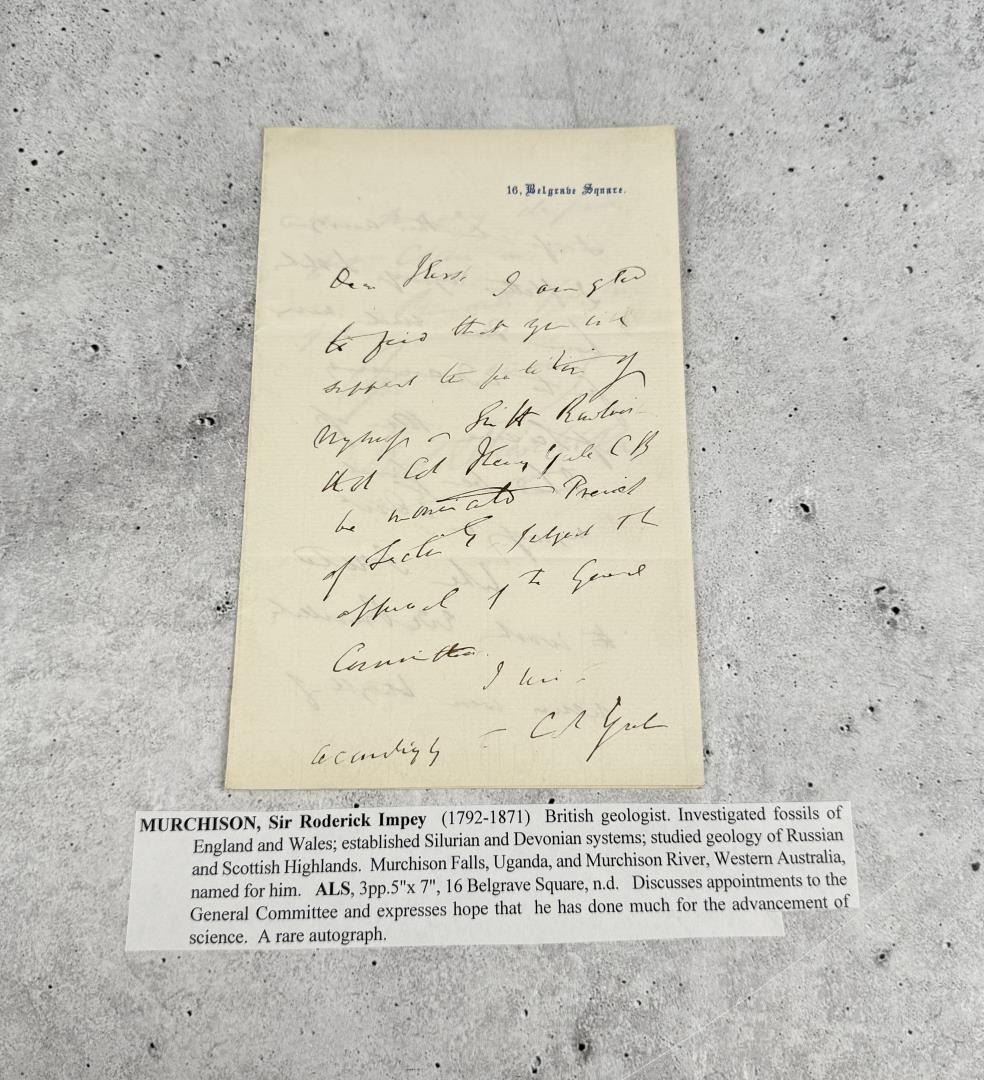 16, Belgrave Square.
Dear I am glad
to find that you will
support the petition of
myself & Sir H Rawlinson
that Col Henry Yule CB
be nominated
of Section E subject to
approval of the General
Committee.
I
accordingly Col Yule
MURCHISON, Sir Roderick Impey (1792-1871) British geologist. Investigated fossils of
England and Wales; established Silurian and Devonian systems; studied geology of Russian
and Scottish Highlands. Murchison Falls, Uganda, and Murchison River, Western Australia,
named for him. ALS, 3pp.5"x 7", 16 Belgrave Square, n.d. Discusses appointments to the
General Committee and expresses hope that he has done much for the advancement of
science. A rare autograph.